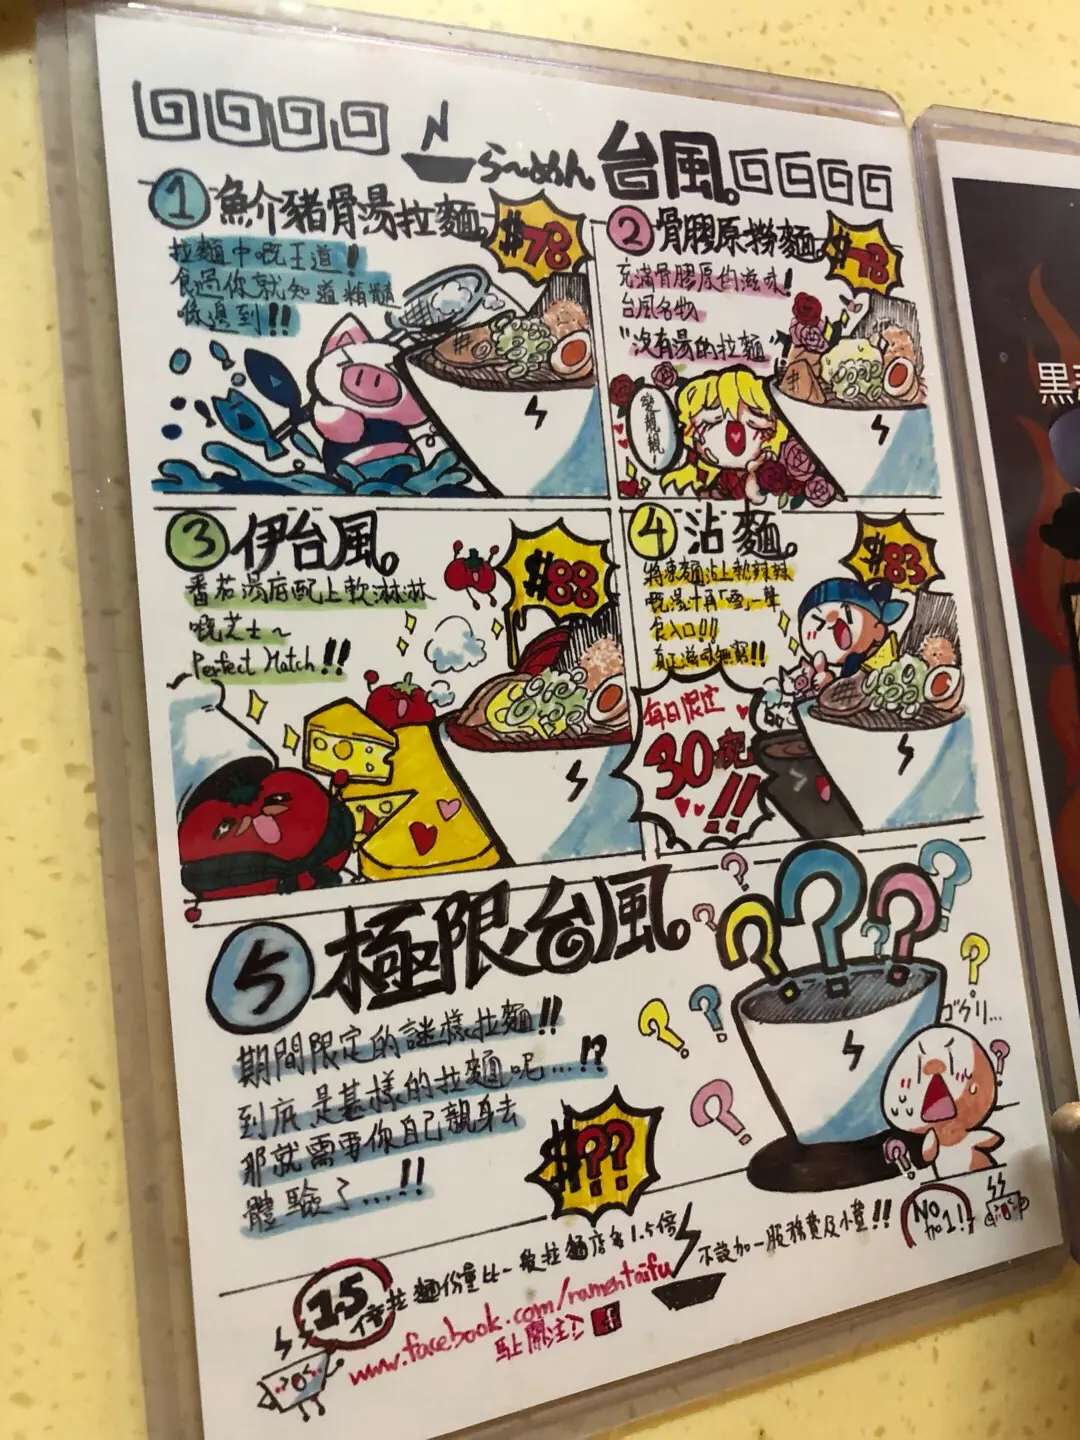 らーめん 台風。
1 魚介豬骨湯拉麵。 $78
拉麵中嘅王道！
食過你就知道精髓
係邊到!!
2 骨膠原撈麵。
充滿骨膠原的滋味！
台風名物
"沒有湯的拉麵"
變靚靚~
3 伊台風。 $88
番茄湯底配上軟淋淋
嘅芝士~
Perfect Match!!
4 沾麵。 $83
嘅湯汁再「雪」一聲
食入口!!
真正滋味無窮!!
每日限定
30碗
!!
5 極限台風。
期間限定的謎樣拉麵!!
到底是甚樣的拉麵呢...!?
那就需要你自己親身去
體驗了...!!
$??
ゴクリ...
1.5倍 拉麵份量比一般拉麵店多1.5倍
不設加一服務費及小費!!
No no 1!!
www.facebook.com/ramentaifu
f
黑